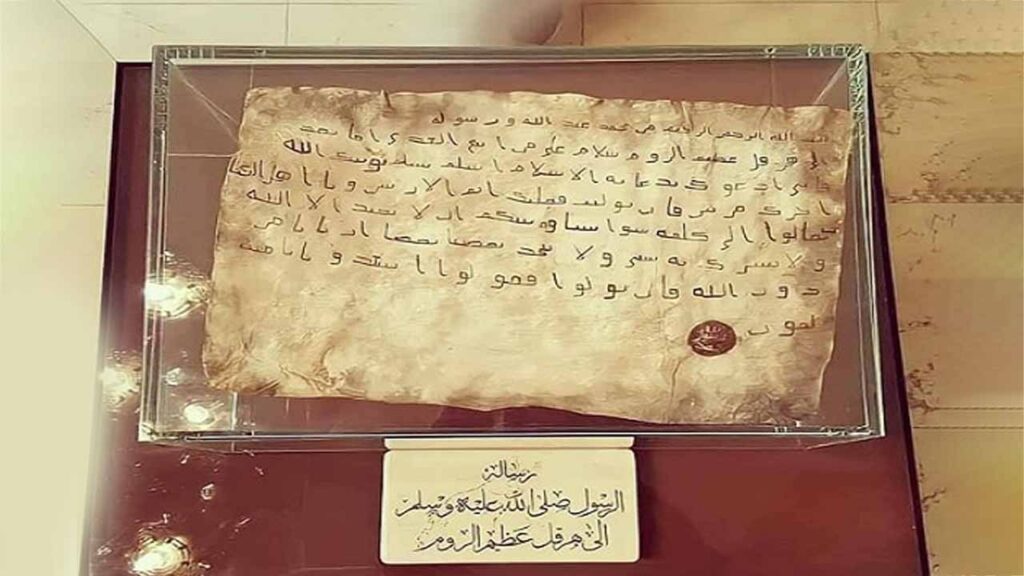 بسم الله الرحمن الرحيم من محمد عبد الله ورسوله
الى هرقل عظيم الروم سلام على من اتبع الهدى اما بعد
فانى ادعوك بدعاية الاسلام اسلم تسلم يوتك الله
اجرك مرتين فان توليت فعليك اثم الاريسين ويا اهل الكتا
تعالوا الى كلمة سوا بيننا وبينكم ان لا نعبد الا الله
ولا نشرك به شى ولا يتخذ بعضنا بعضا اربابا من
دون الله فان تولوا فقولوا اشهدوا بانا مسـ
لمون
رسالة
الرسول صلى الله عليه وسلم
الى هرقل عظيم الروم